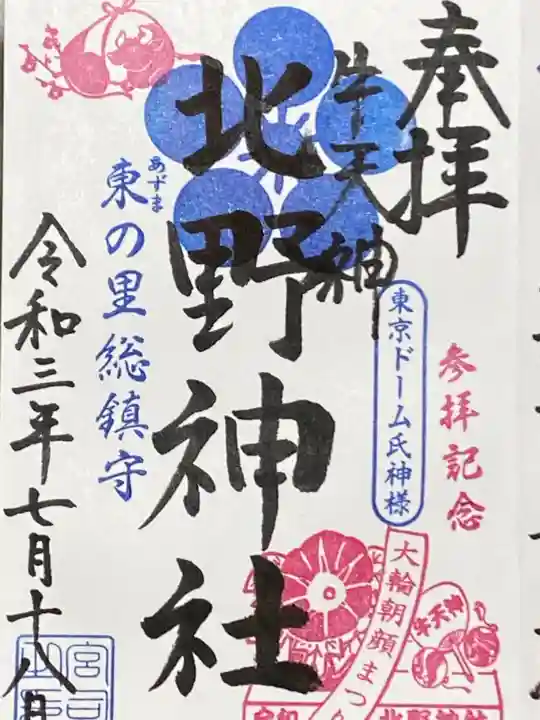 奉拝
牛天神
北野神社
参拝記念
東京ドーム氏神様
東の里総鎮守
あずま
令和三年七月十八日
大輪朝顔まつ
牛天神
北野神社
令和
宮司